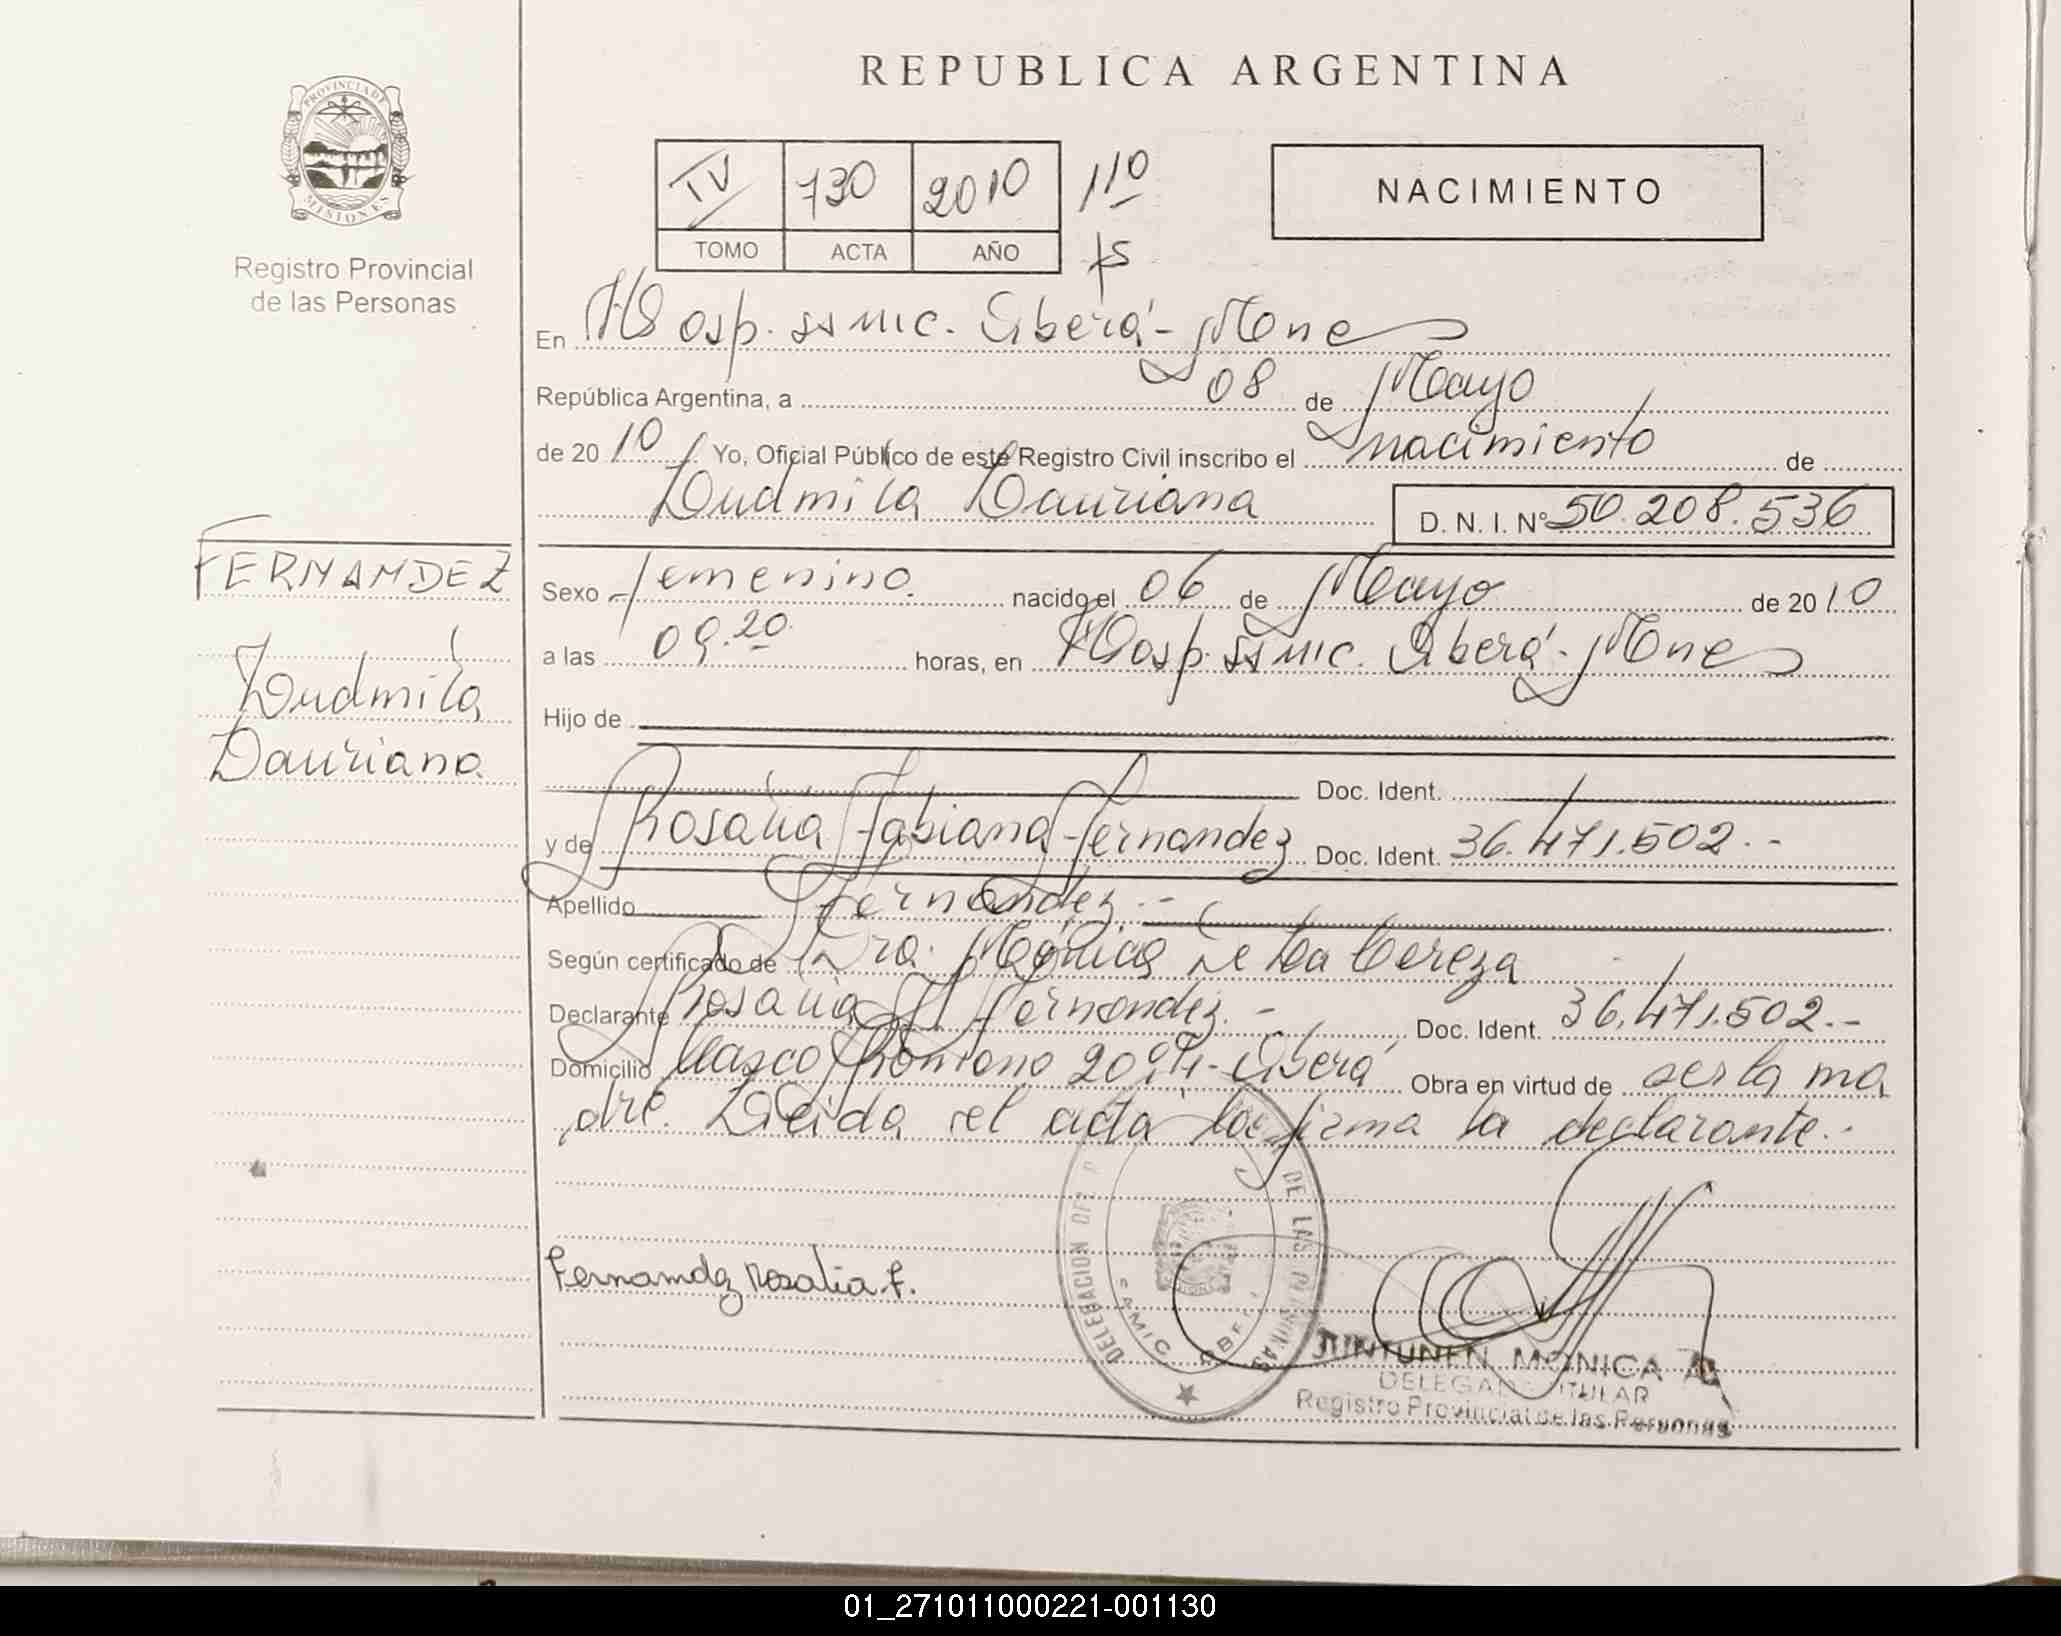 REPUBLICA ARGENTINA
PROVINCIA DE MISIONES
Registro Provincial
de las Personas
IV 730 2010 110
TOMO ACTA AÑO fs
NACIMIENTO
En Hosp. Samic. Oberá - Mnes
República Argentina, a 08 de Mayo
de 2010 Yo, Oficial Público de este Registro Civil inscribo el nacimiento de
Ludmila Dauriana D. N. I. Nº 50.208.536
FERNANDEZ
Ludmila
Dauriana
Sexo femenino. nacido el 06 de Mayo de 2010
a las 09.20 horas, en Hosp. Samic. Oberá - Mnes
Hijo de
Doc. Ident.
y de Rosalia Fabiana Fernandez Doc. Ident. 36.471.502.-
Apellido Fernandez.-
Según certificado de Dra. Mónica De La
Declarante Rosalia F. Fernandez.- Doc. Ident. 36.471.502.-
Domicilio Oberá Obra en virtud de ser la ma
dre. Leida el acta la firma la declarante.-
Fernamdez Rosalia.F.
DELEGACION DE LAS PERSONAS
SAMIC OBERA
JUNTUNEN MONICA
DELEGADA TITULAR
Registro Provincial de las Personas
01_271011000221-001130